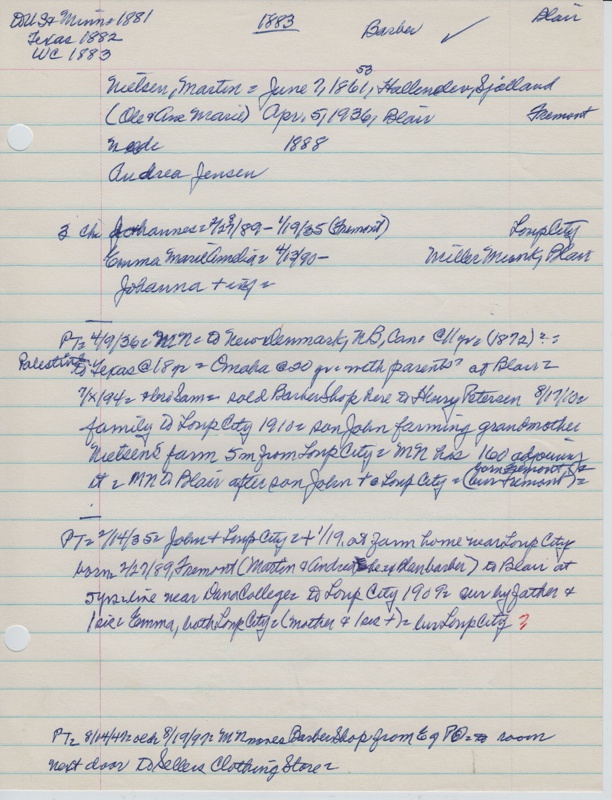 DU St Minn = 1881
Texas 1882
WC 1883
1883
Barber ✓
Blair
Nielsen, Martin = June 7, 1861, 53 Hallenslev, Sjælland
(Ole & Ane Marie) Apr. 5, 1936, Blair Fremont
1888
Andrea Jensen
3 Chi Johannes = 2/27/89 - 1/19/35 (Fremont) Loup City
Emma Marie = 4/13/90 - Miller Munk, Blair
Johanna + inf =
PT = 4/9/36 = MN = to New Denmark, NB, Can = @ 11 yr = (1872) ? =
Palestine to Texas @ 18 yr = Omaha @ 20 yr = with parents? at Blair =
= sold Barber Shop here to Henry Petersen 8/17/10 =
family to Loup City 1910 = son John farming grandmother
Nielsen's farm 5 m from Loup City = MN has 160 adjoining
it = MN to Blair after son John + @ Loup City = (born Fremont) = (bur Fremont) =
PT = 2/14/35 = John + Loup City = + 1/19, at farm home near Loup City
born 2/27/89, Fremont (Martin & Andrea) to Blair at
5 yr = live near Dana College = to Loup City 1909 = sur by father &
1 sis = Emma, both Loup City = (mother & 1 sis +) = bur Loup City ?
PT = 8/14/47 = 8/19/97 = MN moves Barber Shop from Eq PO = to room
next door to Sellers Clothing Store =